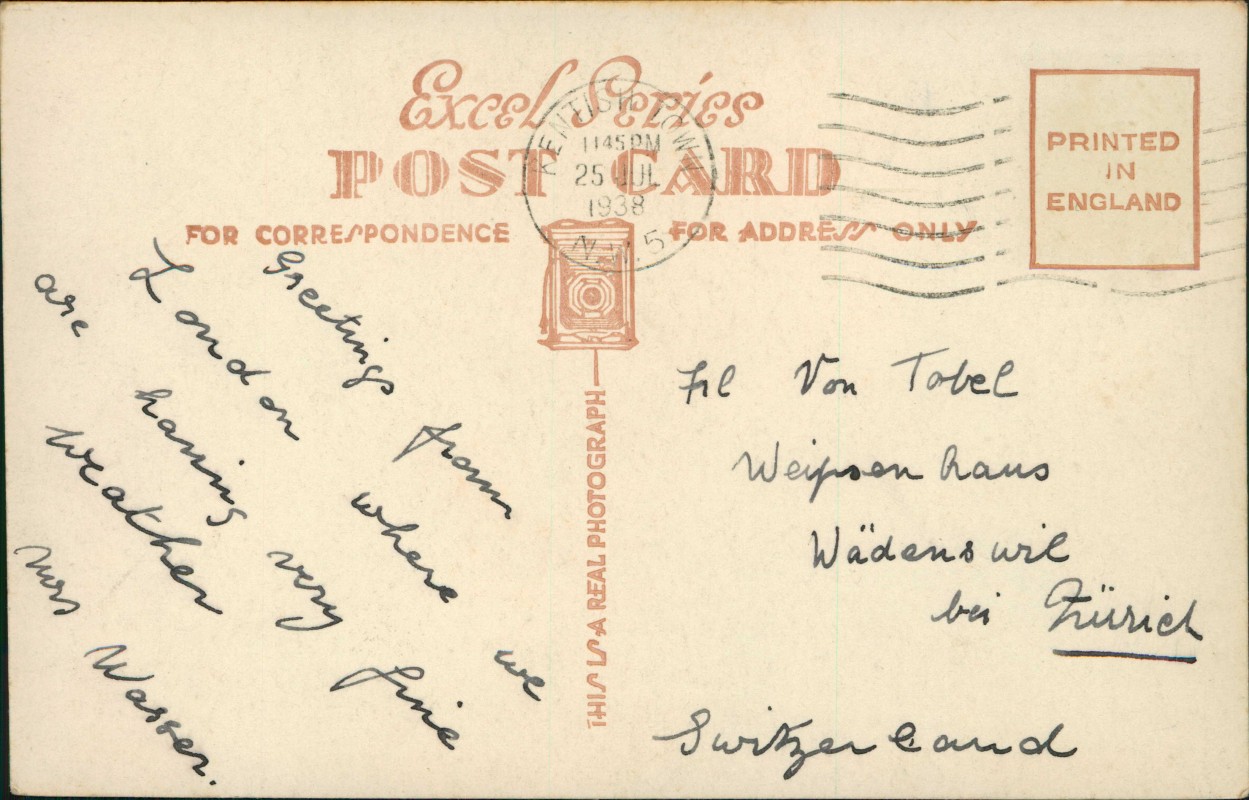 Excel Series
POST CARD
FOR CORRESPONDENCE
FOR ADDRESS ONLY
KENTISH TOWN
1145PM
25 JUL
1938
N.W.5
PRINTED
IN
ENGLAND
THIS IS A REAL PHOTOGRAPH
Greetings from
London where we
are having very fine
weather
Mrs Wasser.
Frl Von Tobel
Weipsenhaus
Wädenswil
bei Zürich
Switzerland